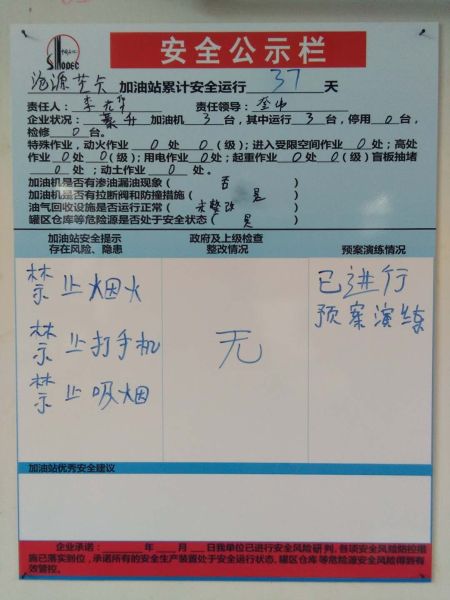 中国石化
SINOPEC
安全公示栏
加油站累计安全运行 37 天
责任人： 责任领导：
企业状况： 加油机 3 台，其中运行 3 台，停用 0 台，
检修 0 台。
特殊作业，动火作业 0 处 0（级）；进入受限空间作业 0 处；高处
作业 0 处 0（级）；用电作业 0 处；起重作业 0 处 0（级）盲板抽堵
0 处；动土作业 0 处。
加油机是否有渗油漏油现象（ 否
加油机是否有拉断阀和防撞措施（ 是
油气回收设施是否运行正常（ 未整改
罐区仓库等危险源是否处于安全状态（ 是
加油站安全提示
存在风险、隐患
政府及上级检查
整改情况
预案演练情况
禁止烟火
禁止打手机
禁止吸烟
无
已进行
预案演练
加油站优秀安全建议
企业承诺：____年__月__日我单位已进行安全风险研判，各项安全风险防控措
施已落实到位，承诺所有的安全生产装置处于安全运行状态，罐区仓库等危险源安全风险得到有
效管控。